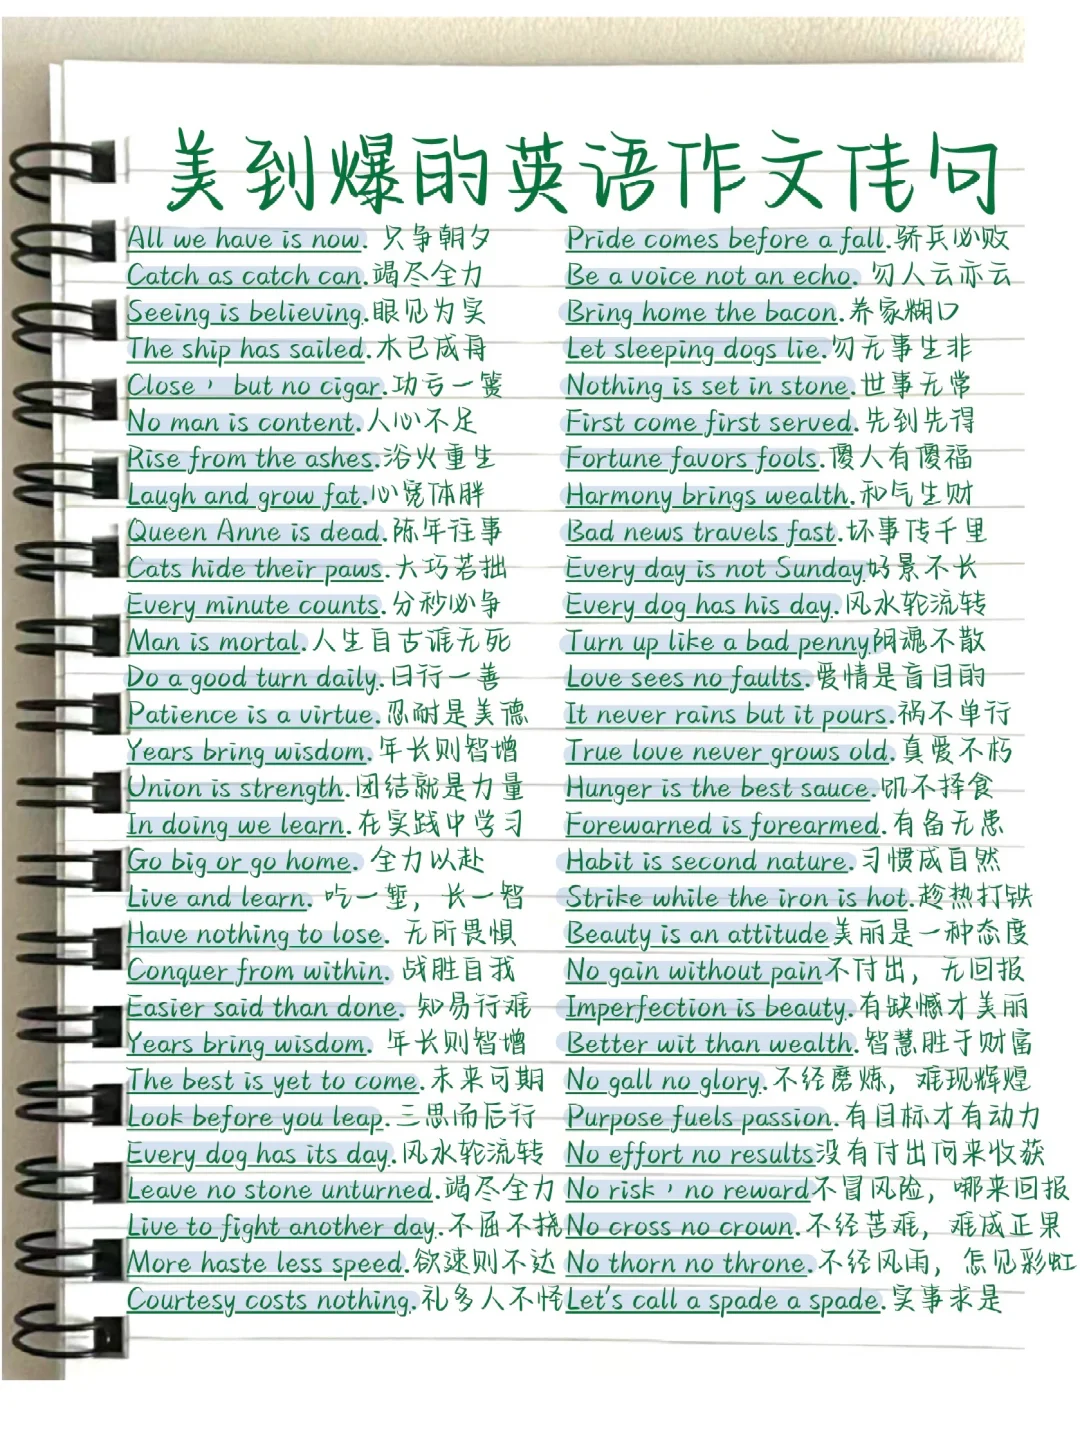 美到爆的英语作文佳句
All we have is now. 只争朝夕
Catch as catch can.竭尽全力
Seeing is believing.眼见为实
The ship has sailed.木已成舟
Close，but no cigar.功亏一篑
No man is content.人心不足
Rise from the ashes.浴火重生
Laugh and grow fat.心宽体胖
Queen Anne is dead.陈年往事
Cats hide their paws.大巧若拙
Every minute counts.分秒必争
Man is mortal.人生自古谁无死
Do a good turn daily.日行一善
Patience is a virtue.忍耐是美德
Years bring wisdom.年长则智增
Union is strength.团结就是力量
In doing we learn.在实践中学习
Go big or go home. 全力以赴
Live and learn. 吃一堑，长一智
Have nothing to lose. 无所畏惧
Conquer from within. 战胜自我
Easier said than done. 知易行难
Years bring wisdom. 年长则智增
The best is yet to come.未来可期
Look before you leap.三思而后行
Every dog has its day.风水轮流转
Leave no stone unturned.竭尽全力
Live to fight another day.不屈不挠
More haste less speed.欲速则不达
Courtesy costs nothing.礼多人不怪
Pride comes before a fall.骄兵必败
Be a voice not an echo. 勿人云亦云
Bring home the bacon.养家糊口
Let sleeping dogs lie.勿无事生非
Nothing is set in stone.世事无常
First come first served.先到先得
Fortune favors fools.傻人有傻福
Harmony brings wealth.和气生财
Bad news travels fast.坏事传千里
Every day is not Sunday好景不长
Every dog has his day.风水轮流转
Turn up like a bad penny阴魂不散
Love sees no faults.爱情是盲目的
It never rains but it pours.祸不单行
True love never grows old.真爱不朽
Hunger is the best sauce.饥不择食
Forewarned is forearmed.有备无患
Habit is second nature.习惯成自然
Strike while the iron is hot.趁热打铁
Beauty is an attitude美丽是一种态度
No gain without pain不付出，无回报
Imperfection is beauty.有缺憾才美丽
Better wit than wealth.智慧胜于财富
No gall no glory.不经磨炼，难现辉煌
Purpose fuels passion.有目标才有动力
No effort no results没有付出何来收获
No risk，no reward不冒风险，哪来回报
No cross no crown.不经苦难，难成正果
No thorn no throne.不经风雨，怎见彩虹
Let's call a spade a spade.实事求是